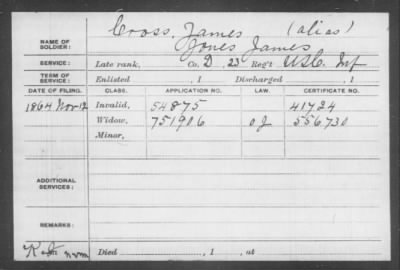 NAME OF SOLDIER: Cross, James (alias)
Jones James
SERVICE: Late rank, Co. D, 23 Reg't U.S.C. Inf
TERM OF SERVICE: Enlisted , 1 Discharged , 1
DATE OF FILING. CLASS. APPLICATION NO. LAW. CERTIFICATE NO.
1864 Nov 12 Invalid, 54875 41724
Widow, 751906 556730
Minor,
ADDITIONAL SERVICES:
REMARKS:
Died , 1 , at